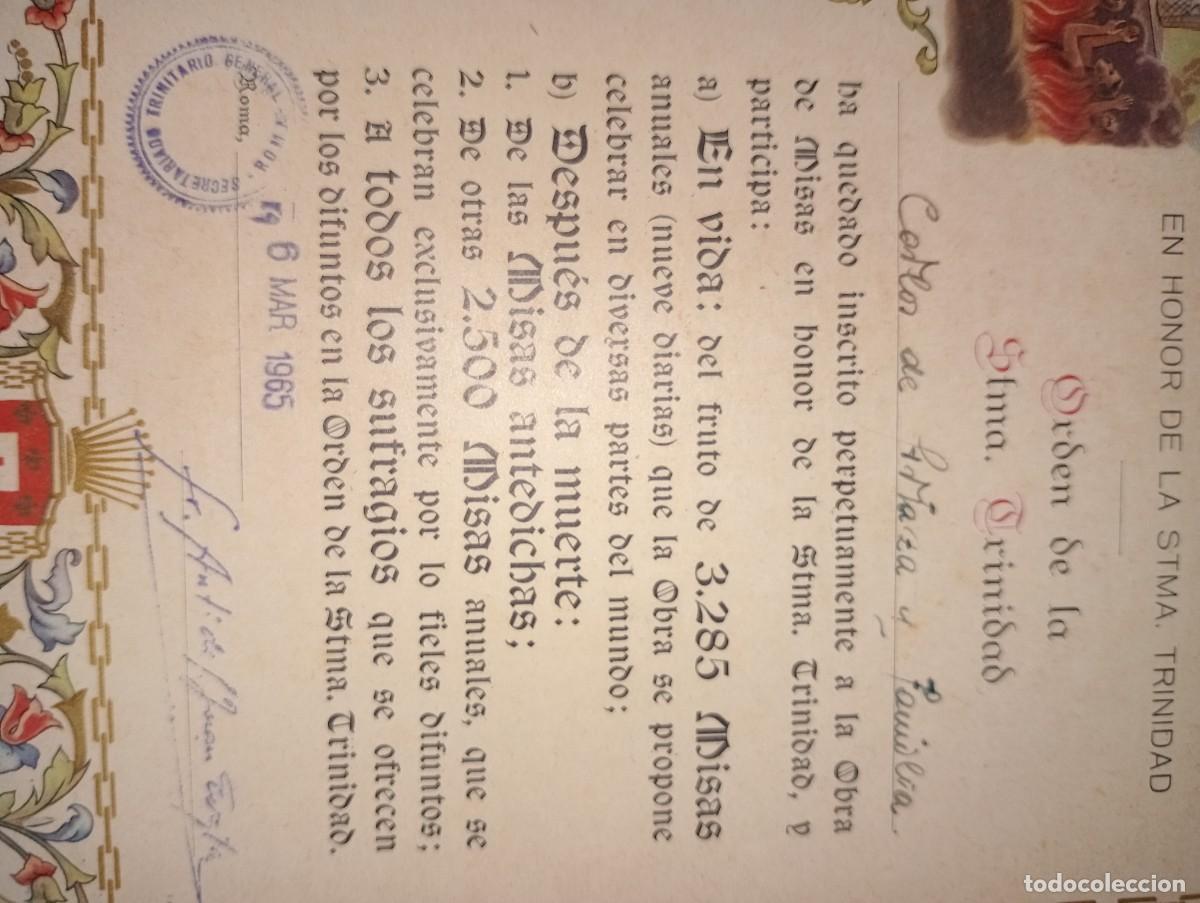 EN HONOR DE LA STMA. TRINIDAD
Orden de la
Stma. Trinidad
Carlos de y Familia.
ha quedado inscrito perpetuamente a la Obra
de Misas en honor de la Stma. Trinidad, y
participa:
a) En vida: del fruto de 3.285 Misas
anuales (nueve diarias) que la Obra se propone
celebrar en diversas partes del mundo;
b) Después de la muerte:
1. De las Misas antedichas;
2. De otras 2.500 Misas anuales, que se
celebran exclusivamente por lo fieles difuntos;
3. A todos los sufragios que se ofrecen
por los difuntos en la Orden de la Stma. Trinidad.
Roma,
6 MAR 1965
SECRETARIADO TRINITARIO GENERAL - ROMA -
Fr.
todocoleccion